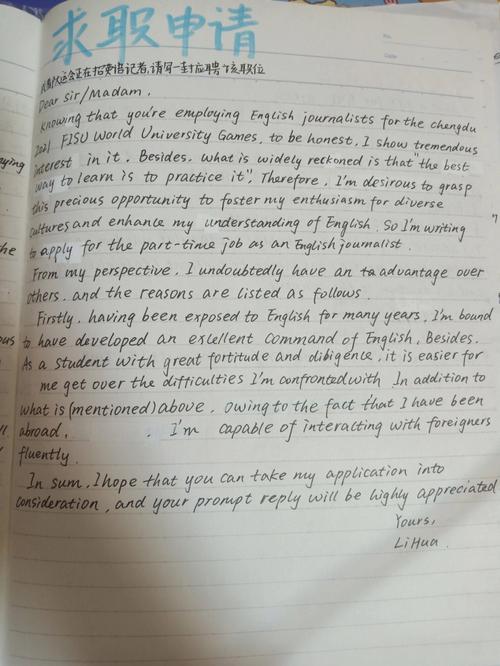 求职申请
大运会正在招英语记者,请写一封应聘该职位
Dear Sir/Madam,
Knowing that you're employing English journalists for the chengdu
2021 FISU World University Games, to be honest, I show tremendous
ying interest in it. Besides, what is widely reckoned is that "the best
way to learn is to practice it". Therefore, I'm desirous to grasp
this precious opportunity to foster my enthusiasm for diverse
cultures and enhance my understanding of English. So I'm writing
he to apply for the part-time job as an English journalist.
From my perspective, I undoubtedly have an advantage over
others, and the reasons are listed as follows.
Firstly, having been exposed to English for many years, I'm bound
ous to have developed an excellent command of English. Besides,
As a student with great fortitude and dibigence, it is easier for
me get over the difficulties I'm confronted with. In addition to
what is (mentioned) above, owing to the fact that I have been
abroad, , I'm capable of interacting with foreigners
fluently.
In sum, I hope that you can take my application into
consideration, and your prompt reply will be highly appreciated
Yours,
Li Hua.